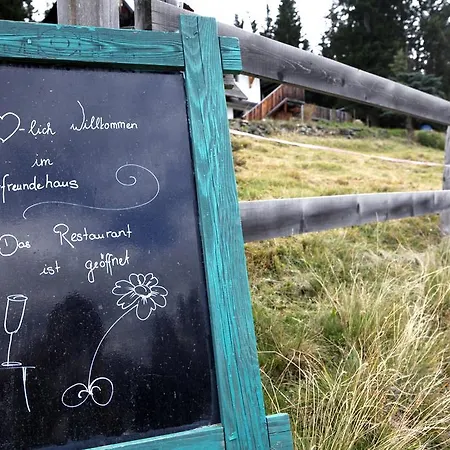 ♡-lich Willkommen
im
freundehaus
Das Restaurant
ist geöffnet